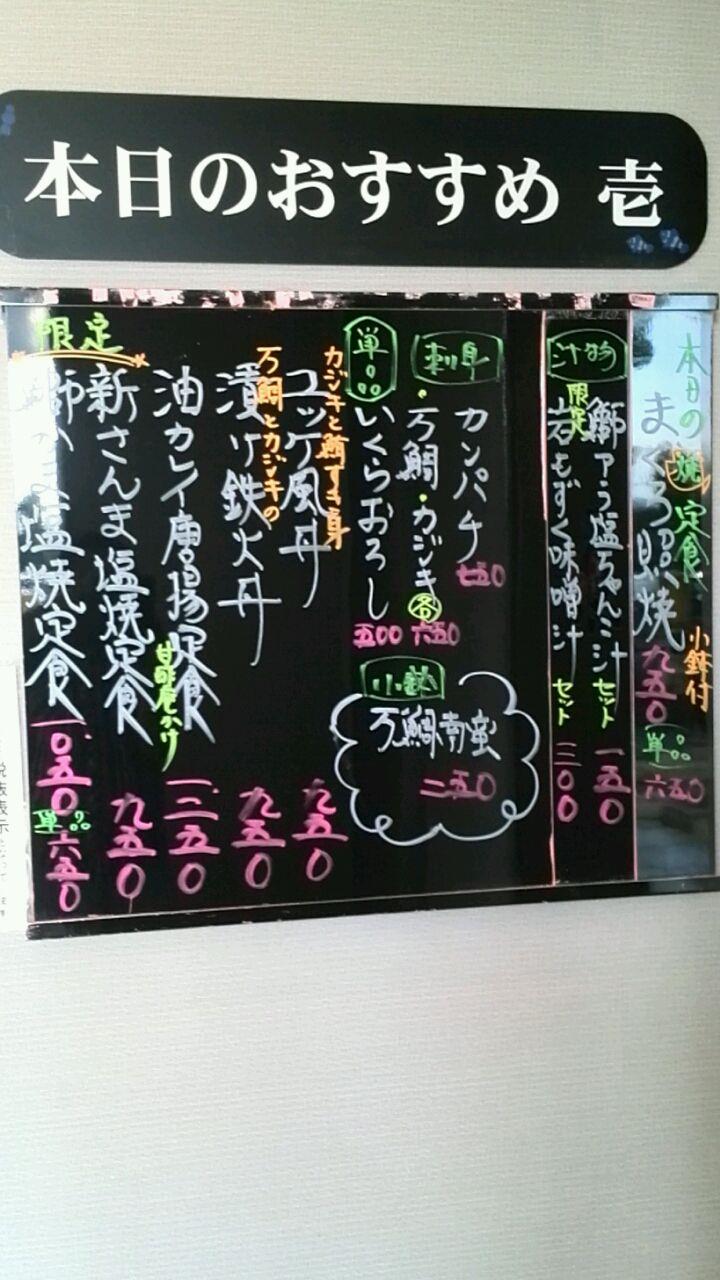 本日のおすすめ 壱
本日の焼定食
まぐろ照焼
小鉢付
九五〇
単品
六五〇
汁物
鰤アラ塩ちゃんこ汁
セット
一五〇
限定
岩もずく味噌汁
セット
二〇〇
刺身
カンパチ
七五〇
・万鯛・カジキ
各
六五〇
単品
いくらおろし
五〇〇
小鉢
万鯛南蛮
二五〇
カジキと鮪すき身
ユッケ風丼
九五〇
万鯛とカジキの
漬け鉄火丼
九五〇
油カレイ唐揚定食
甘酢庵かけ
一二五〇
新さんま塩焼定食
九五〇
限定
鰤かま塩焼定食
一〇五〇
単品
六五〇
税表表示